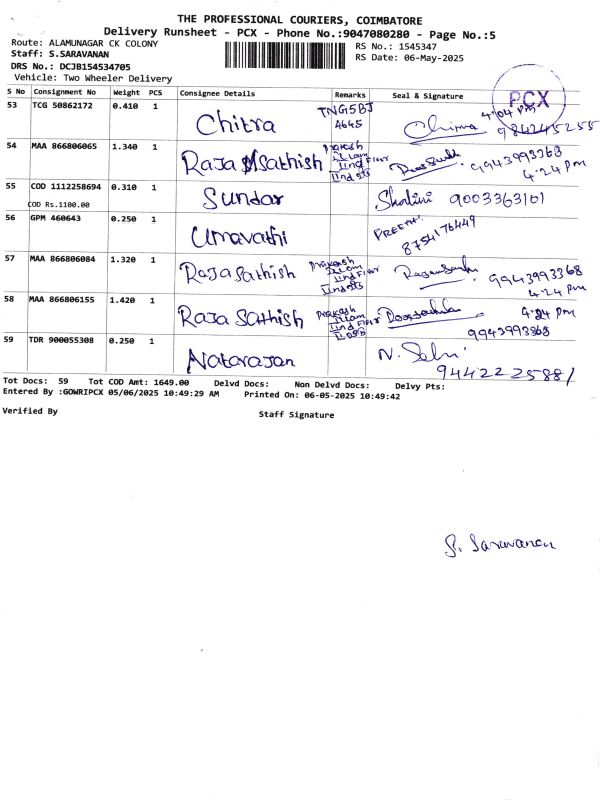 THE PROFESSIONAL COURIERS, COIMBATORE
Delivery Runsheet - PCX - Phone No.:9047080280 - Page No.:5
Route: ALAMUNAGAR CK COLONY
RS No.: 1545347
Staff: S.SARAVANAN
RS Date: 06-May-2025
DRS No.: DCJB154534705
Vehicle: Two Wheeler Delivery
S No Consignment No Weight PCS Consignee Details Remarks Seal & Signature
PCX
53 TCG 50862172 0.410 1 Chitra TNG5BJ 4:04 pm
4645 Chitra 984245255
54 MAA 866806065 1.340 1 Raja Sathish Prakash
Illam
IInd Floor
IInd sts 9943993368
4.24 pm
55 COD 1112258694 0.310 1 Sundar Shalini 9003363101
COD Rs.1100.00
56 GPM 460643 0.250 1 Umavathi PREETHI
8754176449
57 MAA 866806084 1.320 1 Raja Sathish Prakash
Illam
IInd Floor
IInd sts 9943993368
4.24 pm
58 MAA 866806155 1.420 1 Raja Sathish Prakash
Illam
IInd Floor 4.24 pm
9943993368
59 TDR 900055308 0.250 1 Natarajan N. Selvi
9442225881
Tot Docs: 59 Tot COD Amt: 1649.00 Delvd Docs: Non Delvd Docs: Delvy Pts:
Entered By :GOWRIPCX 05/06/2025 10:49:29 AM Printed On: 06-05-2025 10:49:42
Verified By
Staff Signature
S. Saravanan